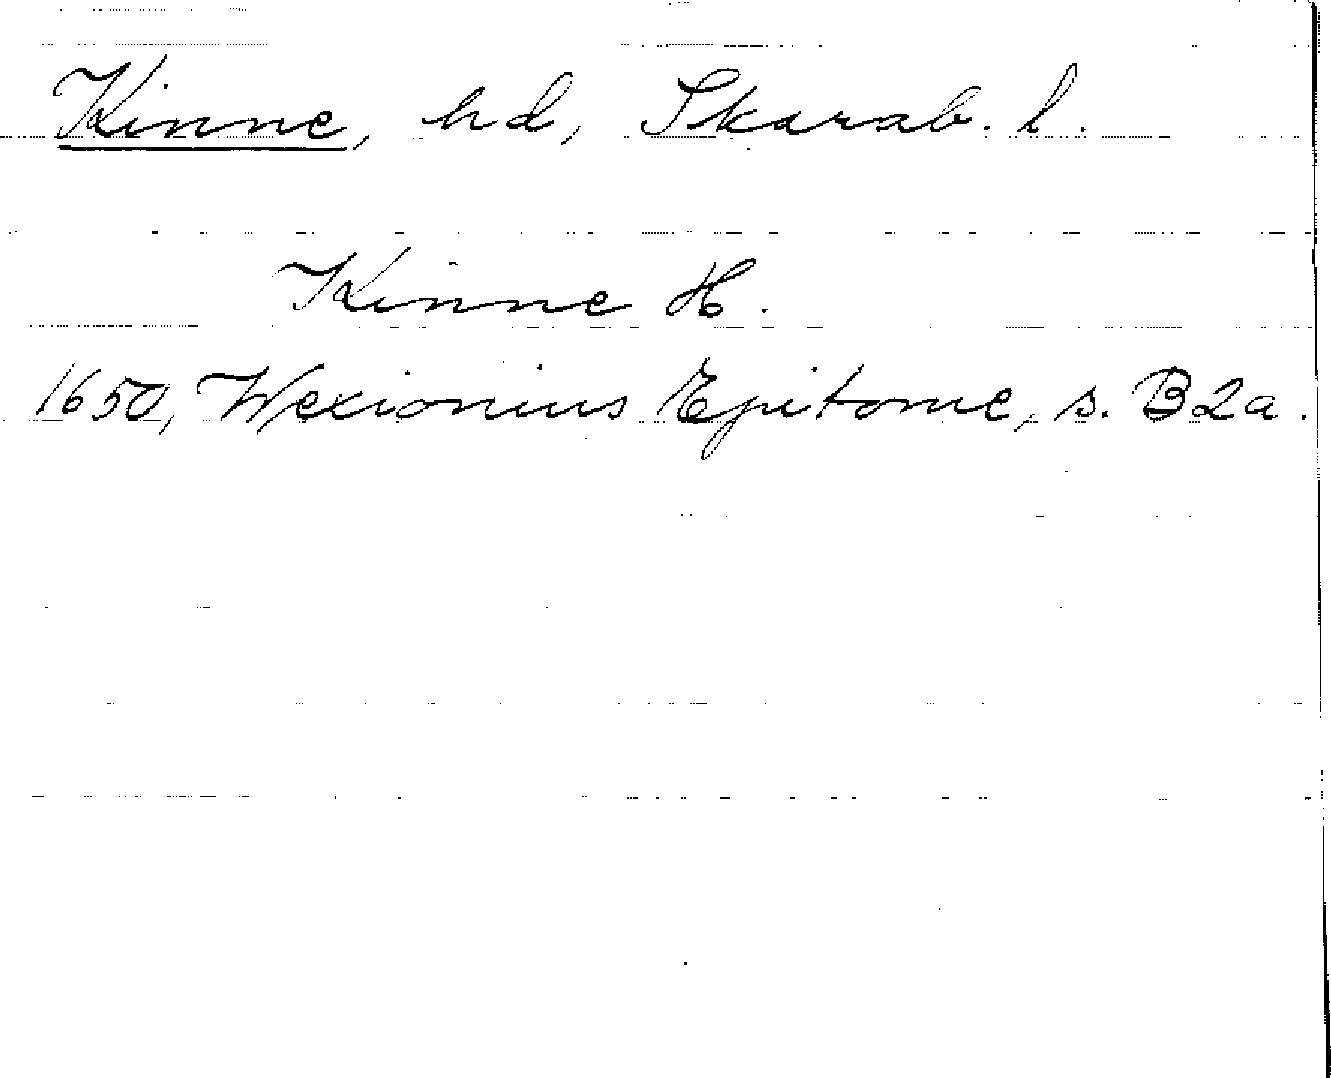 Kinne, hd, Skarab. l.
Kinne H.
1650, Wexionius Epitome, s. B2a.